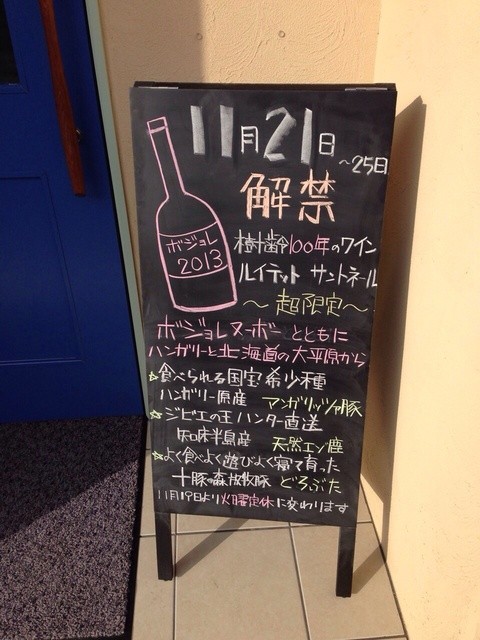 11月21日
～25日
解禁
ボジョレ
2013
樹齢100年のワイン
ルイテット サントネール
～超限定～
ボジョレヌーボー とともに
ハンガリーと北海道の大平原から
☆食べられる国宝 希少種
ハンガリー原産 マンガリッツァ豚
☆ジビエの王 ハンター直送
知床半島産 天然エゾ鹿
☆よく食べよく遊びよく寝て育った
十勝の森放牧豚 どろぶた
11月19日より火曜定休に変わります